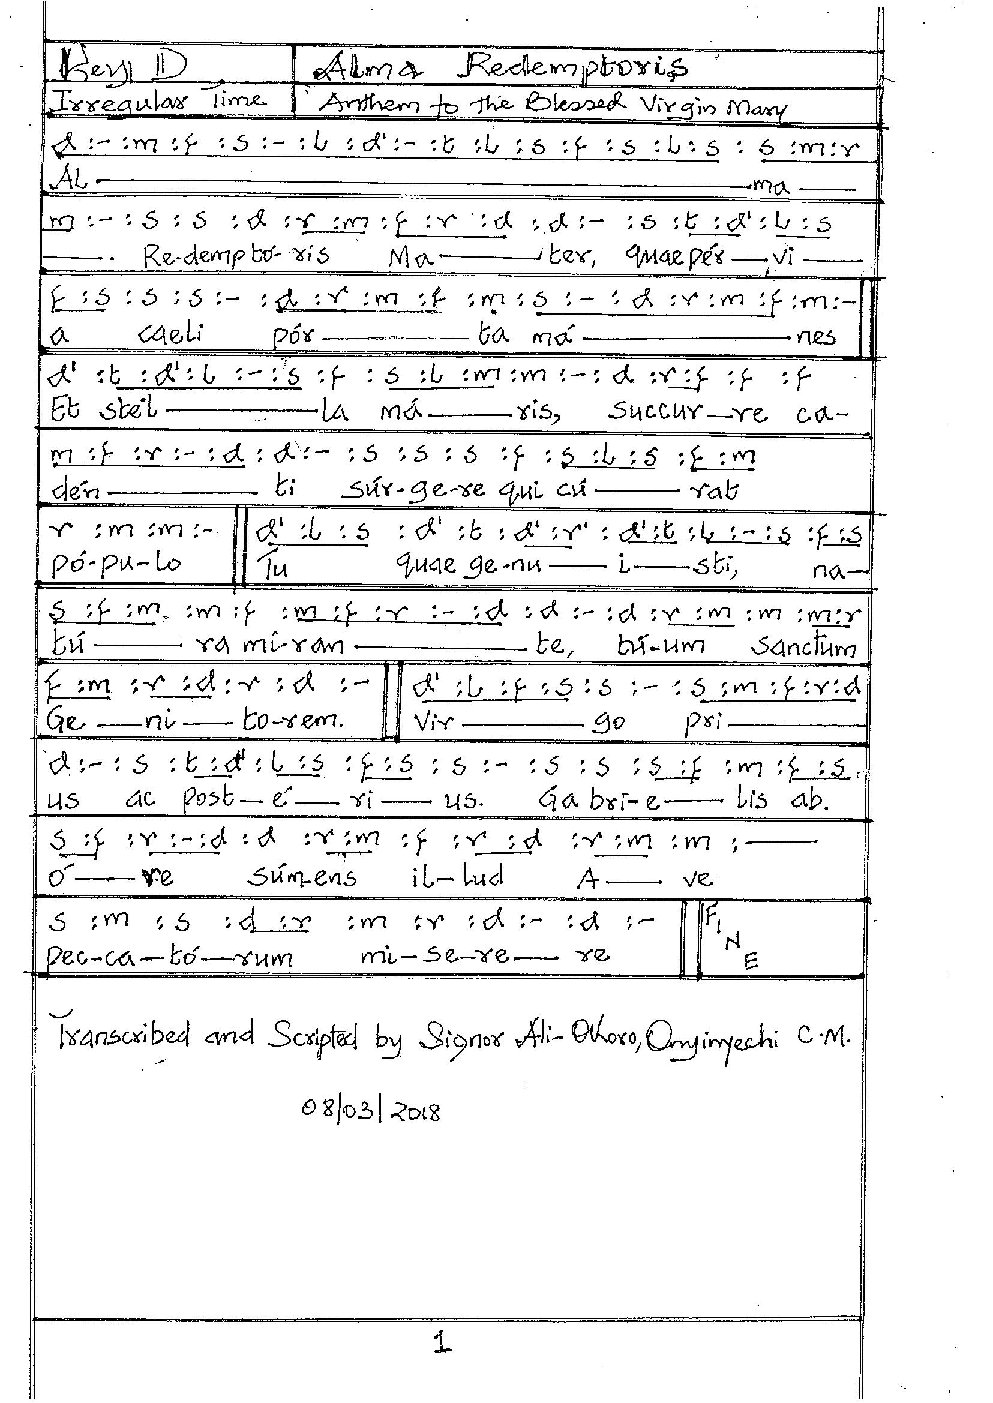 Key D Alma Redemptoris
Irregular Time Anthem to the Blessed Virgin Mary
d :- :m :f :s :- :l :d' :- :t :l :s :f :s :l :s : s :m :r
AL — ma —
m :- :s :s :d :r :m :f :r :d :d :- :s :t :d' :l :s
—. Re-demptó-ris Ma — ter, quae pér — vi —
f :s :s :s :- :d :r :m :f :m :s :- :d :r :m :f :m :-
a caeli pór — ta má — nes
d' :t :d' :l :- :s :f :s :l :m :m :- :d :r :f :f :f
Et stél — la má — ris, succur — re ca-
m :f :r :- :d :d :- :s :s :s :f :s :l :s :f :m
dén — ti súr-ge-re qui cú — rat
r :m :m :- d' :l :s :d' :t :d' :r' :d' :t :l :- :s :f :s
pó-pu-lo Tu quae ge-nu — i — sti, na —
s :f :m :m :f :m :f :r :- :d :d :- :d :r :m :m :m :r
tú — ra mi-ran — te, tú-um sanctum
f :m :r :d :r :d :- d' :l :f :s :s :- :s :m :f :r :d
Ge — ni — to-rem. Vir — go pri —
d :- :s :t :d' :l :s :f :s :s :- :s :s :s :f :m :f :s
us ac post — é — ri — us. Gabri-e — lis ab.
s :f :r :- :d :d :r :m :f :r :d :r :m :m :—
ó — re súmens il-lud A — ve
s :m :s :d :r :m :r :d :- :d :- FINE
pec-ca-tó-rum mi-se-re — re
Transcribed and Scripted by Signor Ali-Okoro, Onyinyechi C.M.
08/03/2018
1